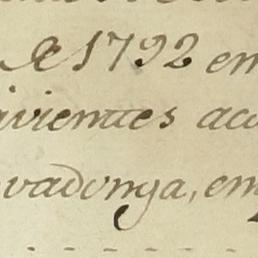 de 1792 em
vivientes aca
vadonga, em